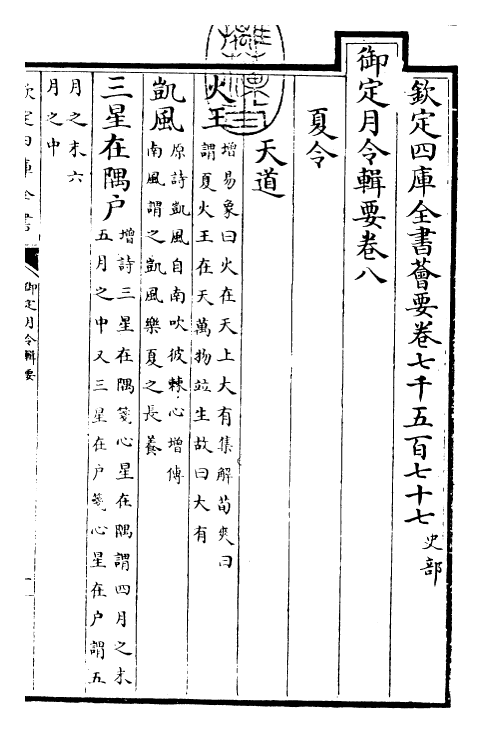 欽定四庫全書薈要卷七千五百七十七 史部
御定月令輯要卷八
夏令
天道
火王 增易象曰火在天上大有集解荀爽曰
謂夏火王在天萬物竝生故曰大有
凱風 原詩凱風自南吹彼棘心增傳
南風謂之凱風樂夏之長養
三星在隅户 增詩三星在隅箋心星在隅謂四月之末
五月之中又三星在户箋心星在户謂五
月之末六
月之中
欽定四庫全書
御定月令輯要